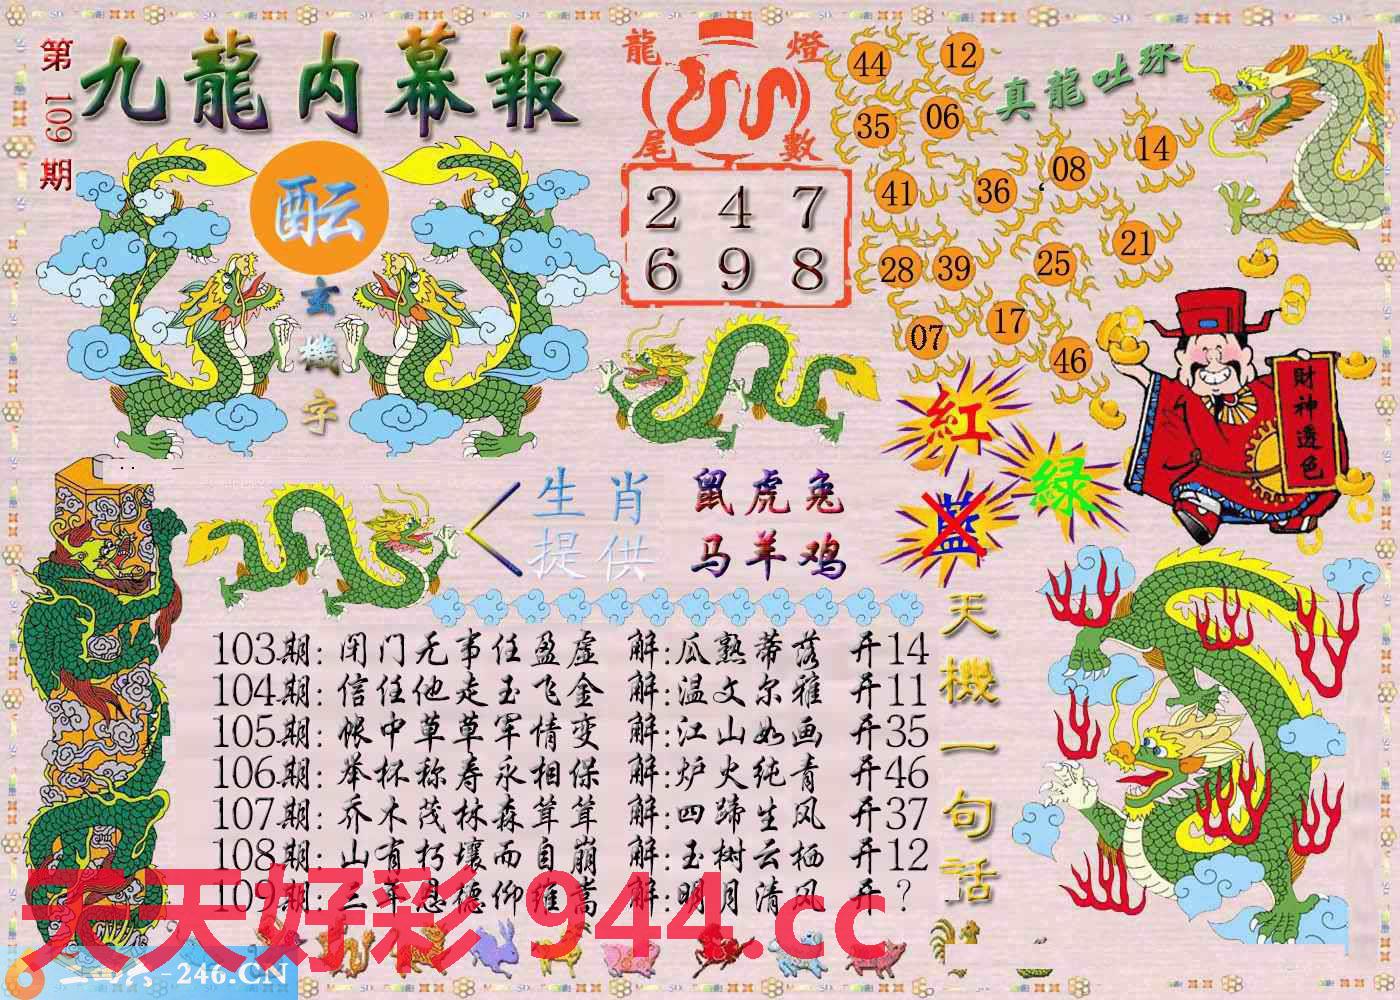 第109期
九龍内幕報
酝
玄機字
龍燈
尾數
2 4 7
6 9 8
真龍吐珠
44 12
35 06
41 36 08 14
28 39 25 21
07 17 46
財神透色
紅
绿
藍
生肖
提供
鼠虎兔
马羊鸡
天機一句話
103期:闭门无事任盈虚 解:瓜熟蒂落 开14
104期:信任他走玉飞金 解:温文尔雅 开11
105期:帐中草草军情变 解:江山如画 开35
106期:举杯称寿永相保 解:炉火纯青 开46
107期:乔木茂林森茸茸 解:四蹄生风 开37
108期:山有朽壤而自崩 解:玉树云栖 开12
109期:三年恩德仰维嵩 解:明月清风 开?
天天好彩 944.cc
二四六-246.CN